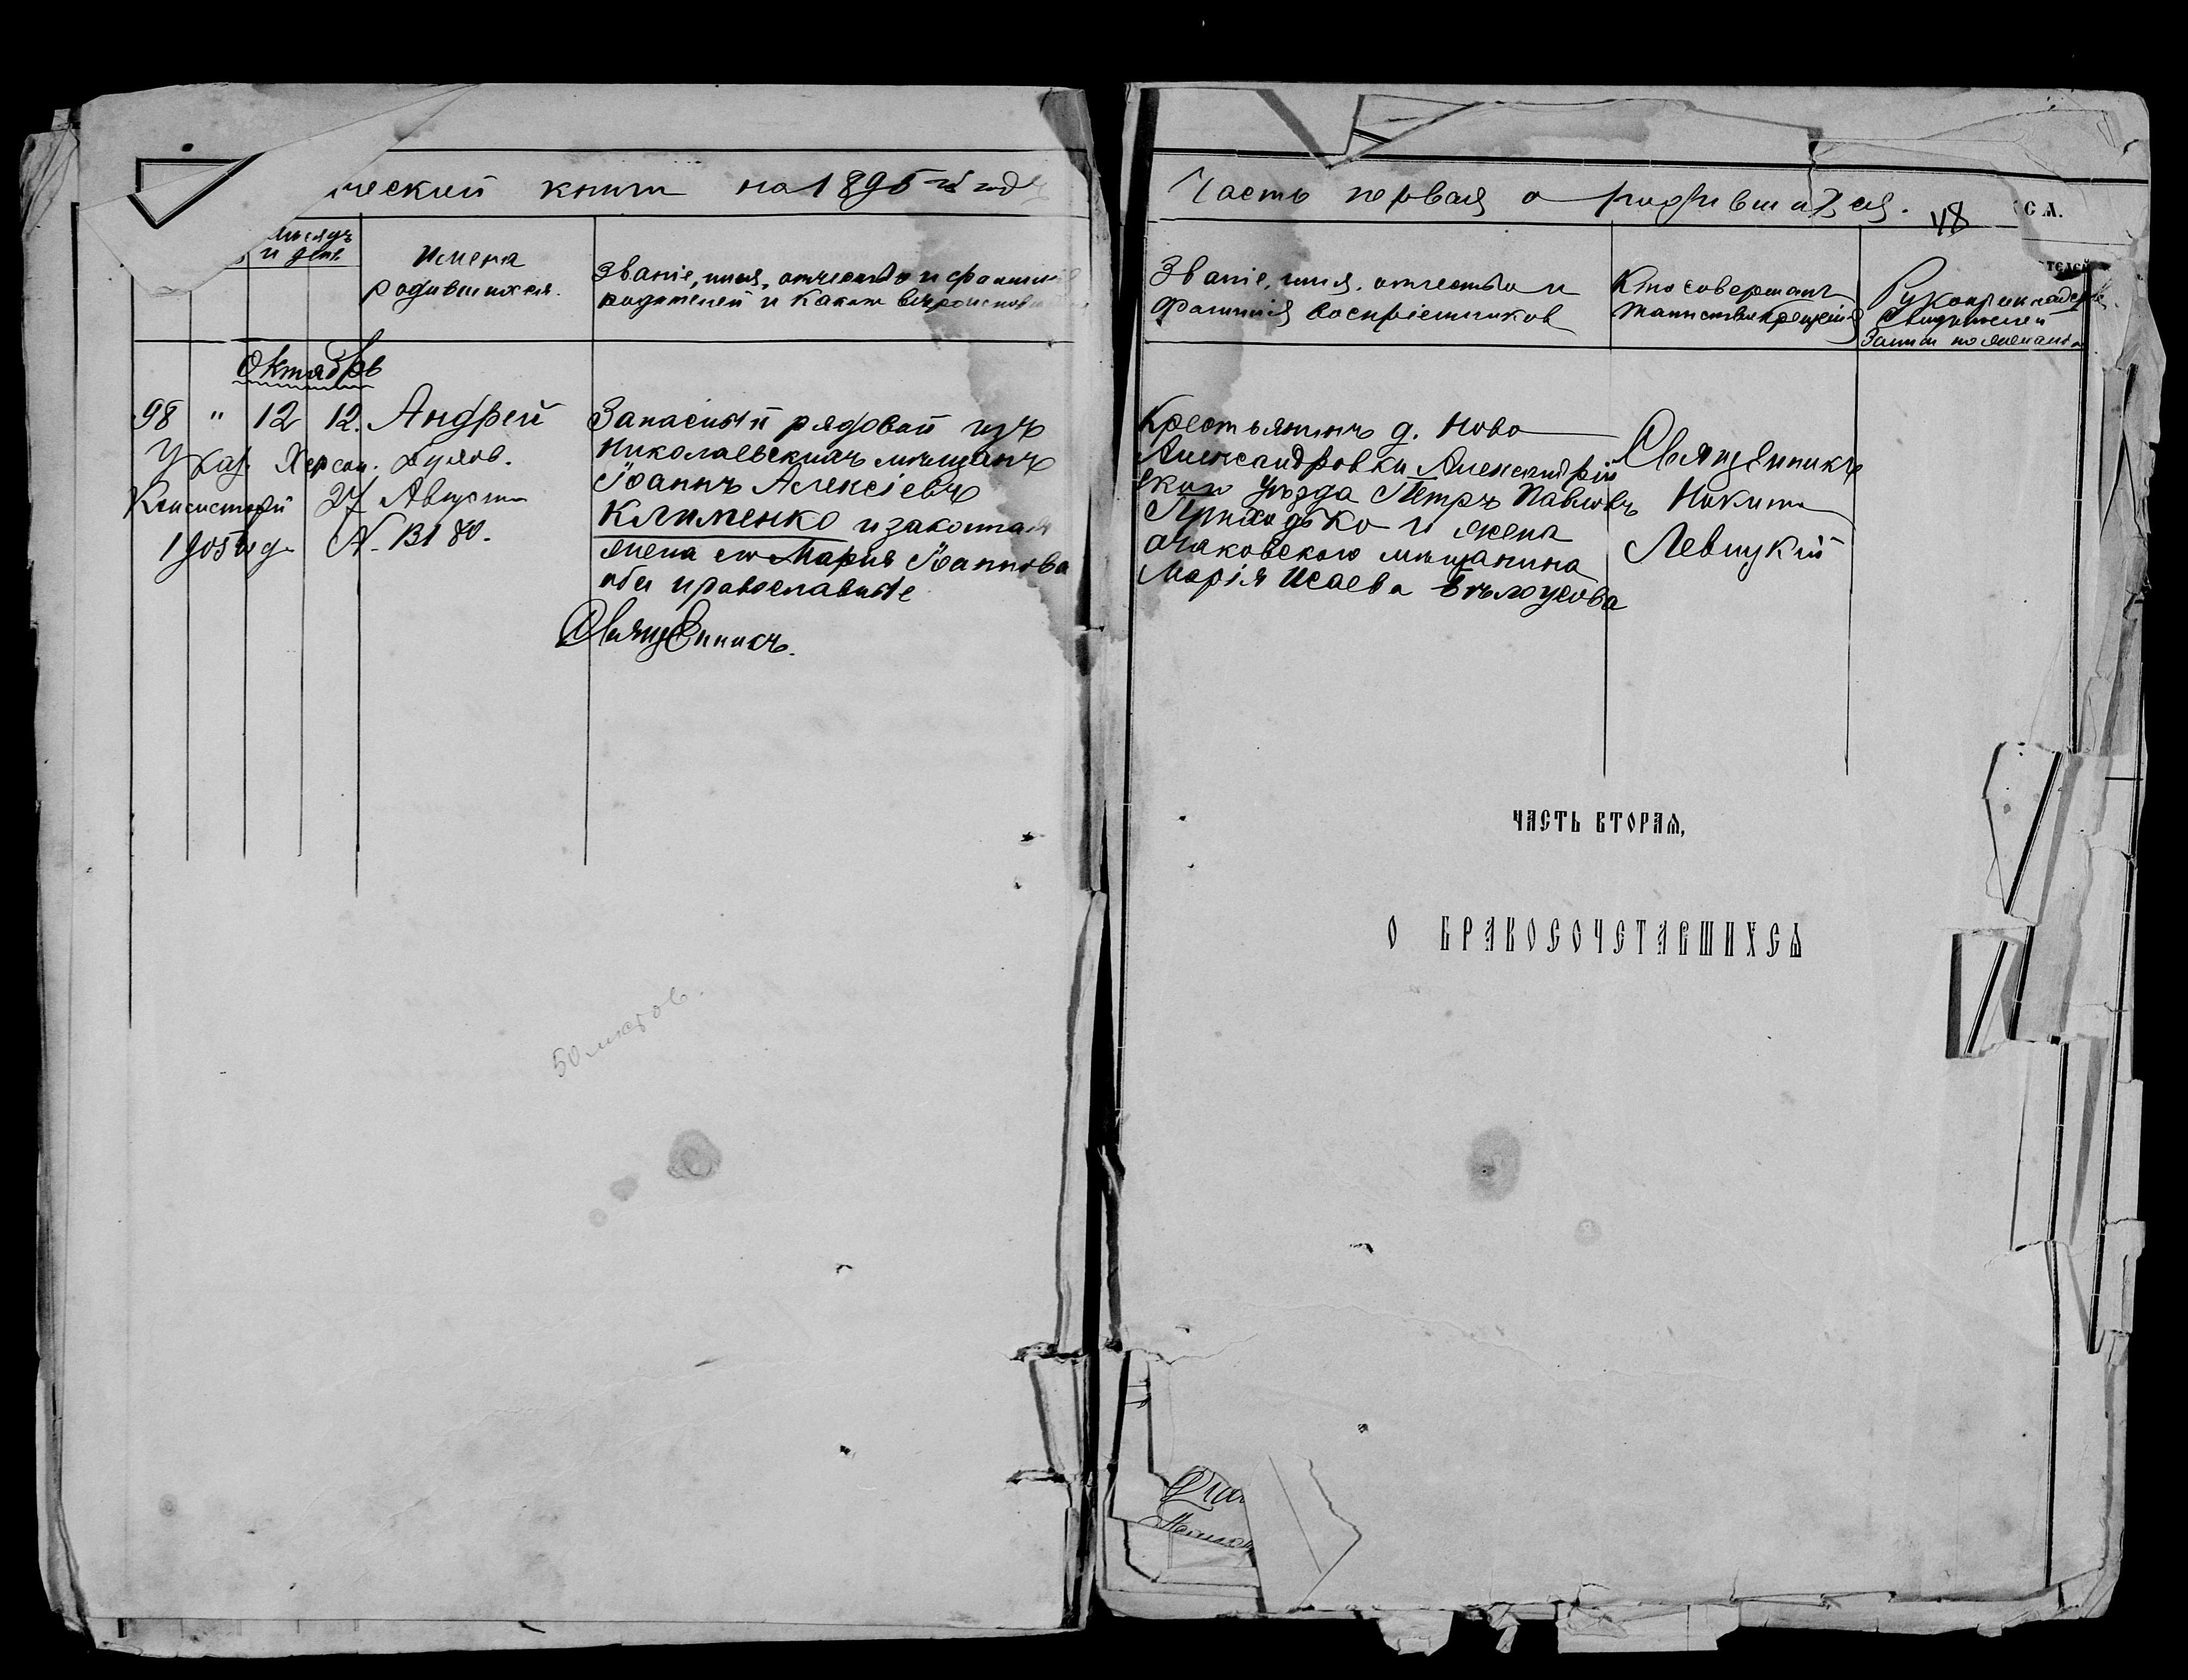 ческий книги на 1895й годъ
Часть первая о родившихся. 48
СЯ.
Мѣсяцъ
и день
Имена
родившихся.
Званіе, имя, отчество и фамилія
родителей и какого вѣроисповѣд
Званіе, имя, отчество и
фамилія воспріемниковъ
Кто совершалъ
таинство крещенія
Рукоприкладство
свидѣтелей
записи по желанію
телей
Октябрь
98 " 12 12. Андрей
Указ. Херсон. Духов.
Консисторіи 27 Августа
1905 года N. 13180.
Запасный рядовой изъ
Николаевскихъ мѣщанъ
Іоаннъ Алексіевъ
Клименко и законная
жена его Марія Іоаннова
оба православные
Священникъ.
Крестьянинъ д. Ново
Александровки Александрій
скаго уѣзда Петръ Павловъ
Приходько и жена
очаковскаго мѣщанина
Марія Исаева Бѣлоусова
Священникъ
Никита
Левицкій
ЧАСТЬ ВТОРАЯ,
О БРАКОСОЧЕТАВШИХСЯ
50 листов.